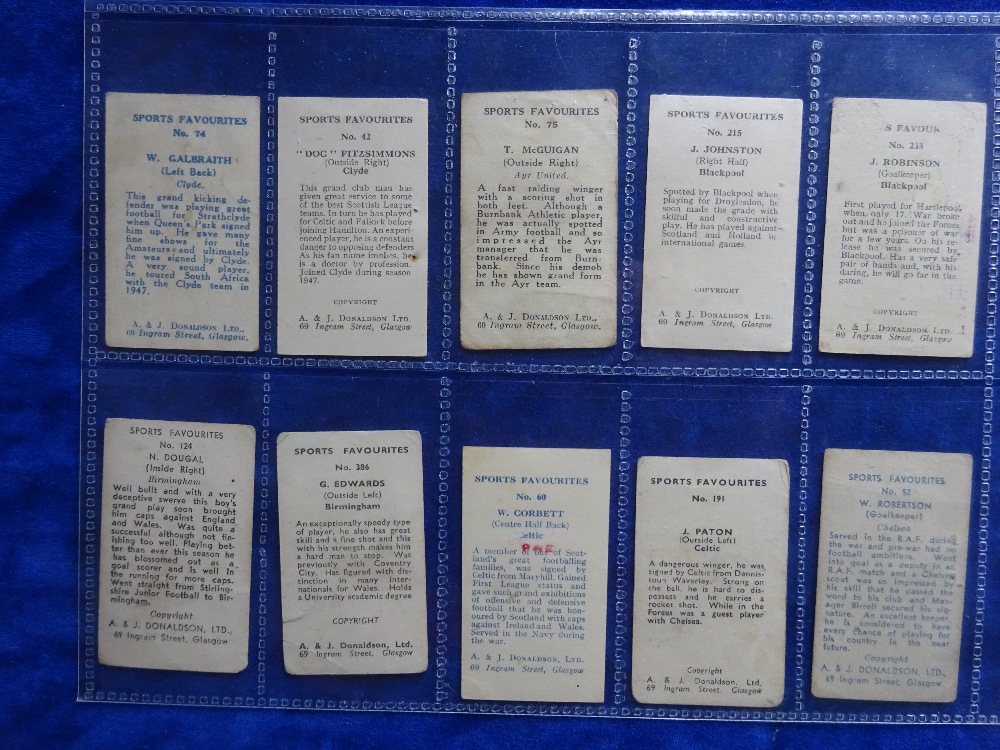 SPORTS FAVOURITES
No. 74
W. GALBRAITH
(Left Back)
Clyde.
This grand kicking de-
fender was playing great
football for Strathclyde
when Queen's Park signed
him up. He gave many
fine shows for the
Amateurs and ultimately
he was signed by Clyde.
A very sound player,
he toured South Africa
with the Clyde team in
1947.
A. & J. DONALDSON LTD.,
69 Ingram Street, Glasgow.
SPORTS FAVOURITES
No. 42
"DOC" FITZSIMMONS
(Outside Right)
Clyde
This grand club man has
given great service to some
of the best Scottish League
teams. In turn he has played
for Celtic and Falkirk before
joining Hamilton. An experi-
enced player, he is a constant
danger to opposing defenders
As his fan name implies, he
is a doctor by profession.
Joined Clyde during season
1947.
COPYRIGHT
A. & J. DONALDSON LTD.,
69 Ingram Street, Glasgow
SPORTS FAVOURITES
No. 75
T. McGUIGAN
(Outside Right)
Ayr United.
A fast raiding winger
with a scoring shot in
both feet. Although a
Burnbank Athletic player,
he was actually spotted
in Army football and so
impressed the Ayr
manager that he was
transferred from Burn-
bank. Since his demob
he has shown grand form
in the Ayr team.
A. & J. DONALDSON LTD.,
69 Ingram Street, Glasgow.
SPORTS FAVOURITES
No. 215
J. JOHNSTON
(Right Half)
Blackpool
Spotted by Blackpool when
playing for Droylesdon, he
soon made the grade with
skilful and constructive
play. He has played against
Scotland and Holland in
international games.
COPYRIGHT
A. & J. DONALDSON LTD.
69 Ingram Street, Glasgow
S FAVOUR
No. 238
J. ROBINSON
(Goalkeeper)
Blackpool
First played for Hartlepool
when only 17. War broke
out and he joined the Forces
but was a prisoner of war
for a few years. On his re-
lease he was secured by
Blackpool. Has a very safe
pair of hands and, with his
daring, he will go far in the
game.
COPYRIGHT
A. & J. DONALDSON LTD.
69 Ingram Street, Glasgow
SPORTS FAVOURITES
No. 124
N. DOUGAL
(Inside Right)
Birmingham
Well built and with a very
deceptive swerve this boy's
grand play soon brought
him caps against England
and Wales. Was quite a
successful although not fin-
ishing too well. Playing bet-
ter than ever this season he
has blossomed out as a
goal scorer and is well in
the running for more caps.
Went straight from Stirling-
shire Junior Football to Bir-
mingham.
Copyright
A. & J. DONALDSON, LTD.,
69 Ingram Street, Glasgow
SPORTS FAVOURITES
No. 386
G. EDWARDS
(Outside Left)
Birmingham
An exceptionally speedy type
of player, he also has great
skill and a fine shot and this
with his strength makes him
a hard man to stop. Was
previously with Coventry
City. Has figured with dis-
tinction in many inter-
nationals for Wales. Holds
a University academic degree
COPYRIGHT
A. & J. Donaldson, Ltd.
69 Ingram Street, Glasgow
SPORTS FAVOURITES
No. 60
W. CORBETT
(Centre Half Back)
Celtic
PNE
A member of one of Scot-
land's great footballing
families, was signed by
Celtic from Maryhill. Gained
First League status and
gave such grand exhibitions
of offensive and defensive
football that he was hon-
oured by Scotland with caps
against Ireland and Wales.
Served in the Navy during
the war.
A. & J. DONALDSON, LTD.
69 Ingram Street, Glasgow
SPORTS FAVOURITES
No. 191
J. PATON
(Outside Left)
Celtic
A dangerous winger, he was
signed by Celtic from Dennis-
toun Waverley. Strong on
the ball, he is hard to dis-
possess and he carries a
rocket shot. While in the
Forces was a guest player
with Chelsea.
Copyright
A. & J. Donaldson, Ltd,
69 Ingram Street, Glasgow
SPORTS FAVOURITES
No. 52
W. ROBERTSON
(Goalkeeper)
Chelsea
Served in the R.A.F. during
the war and pre-war had no
football ambitions. Went
into goal as a deputy in an
R.A.F. match and a Chelsea
scout was so impressed by
his skill that he passed the
word to his club and Man-
ager Birrell secured his sig-
nature. An excellent keeper,
he is considered to have
every chance of playing for
his country in the near
future.
Copyright
A. & J. DONALDSON, LTD,
69 Ingram Street, Glasgow